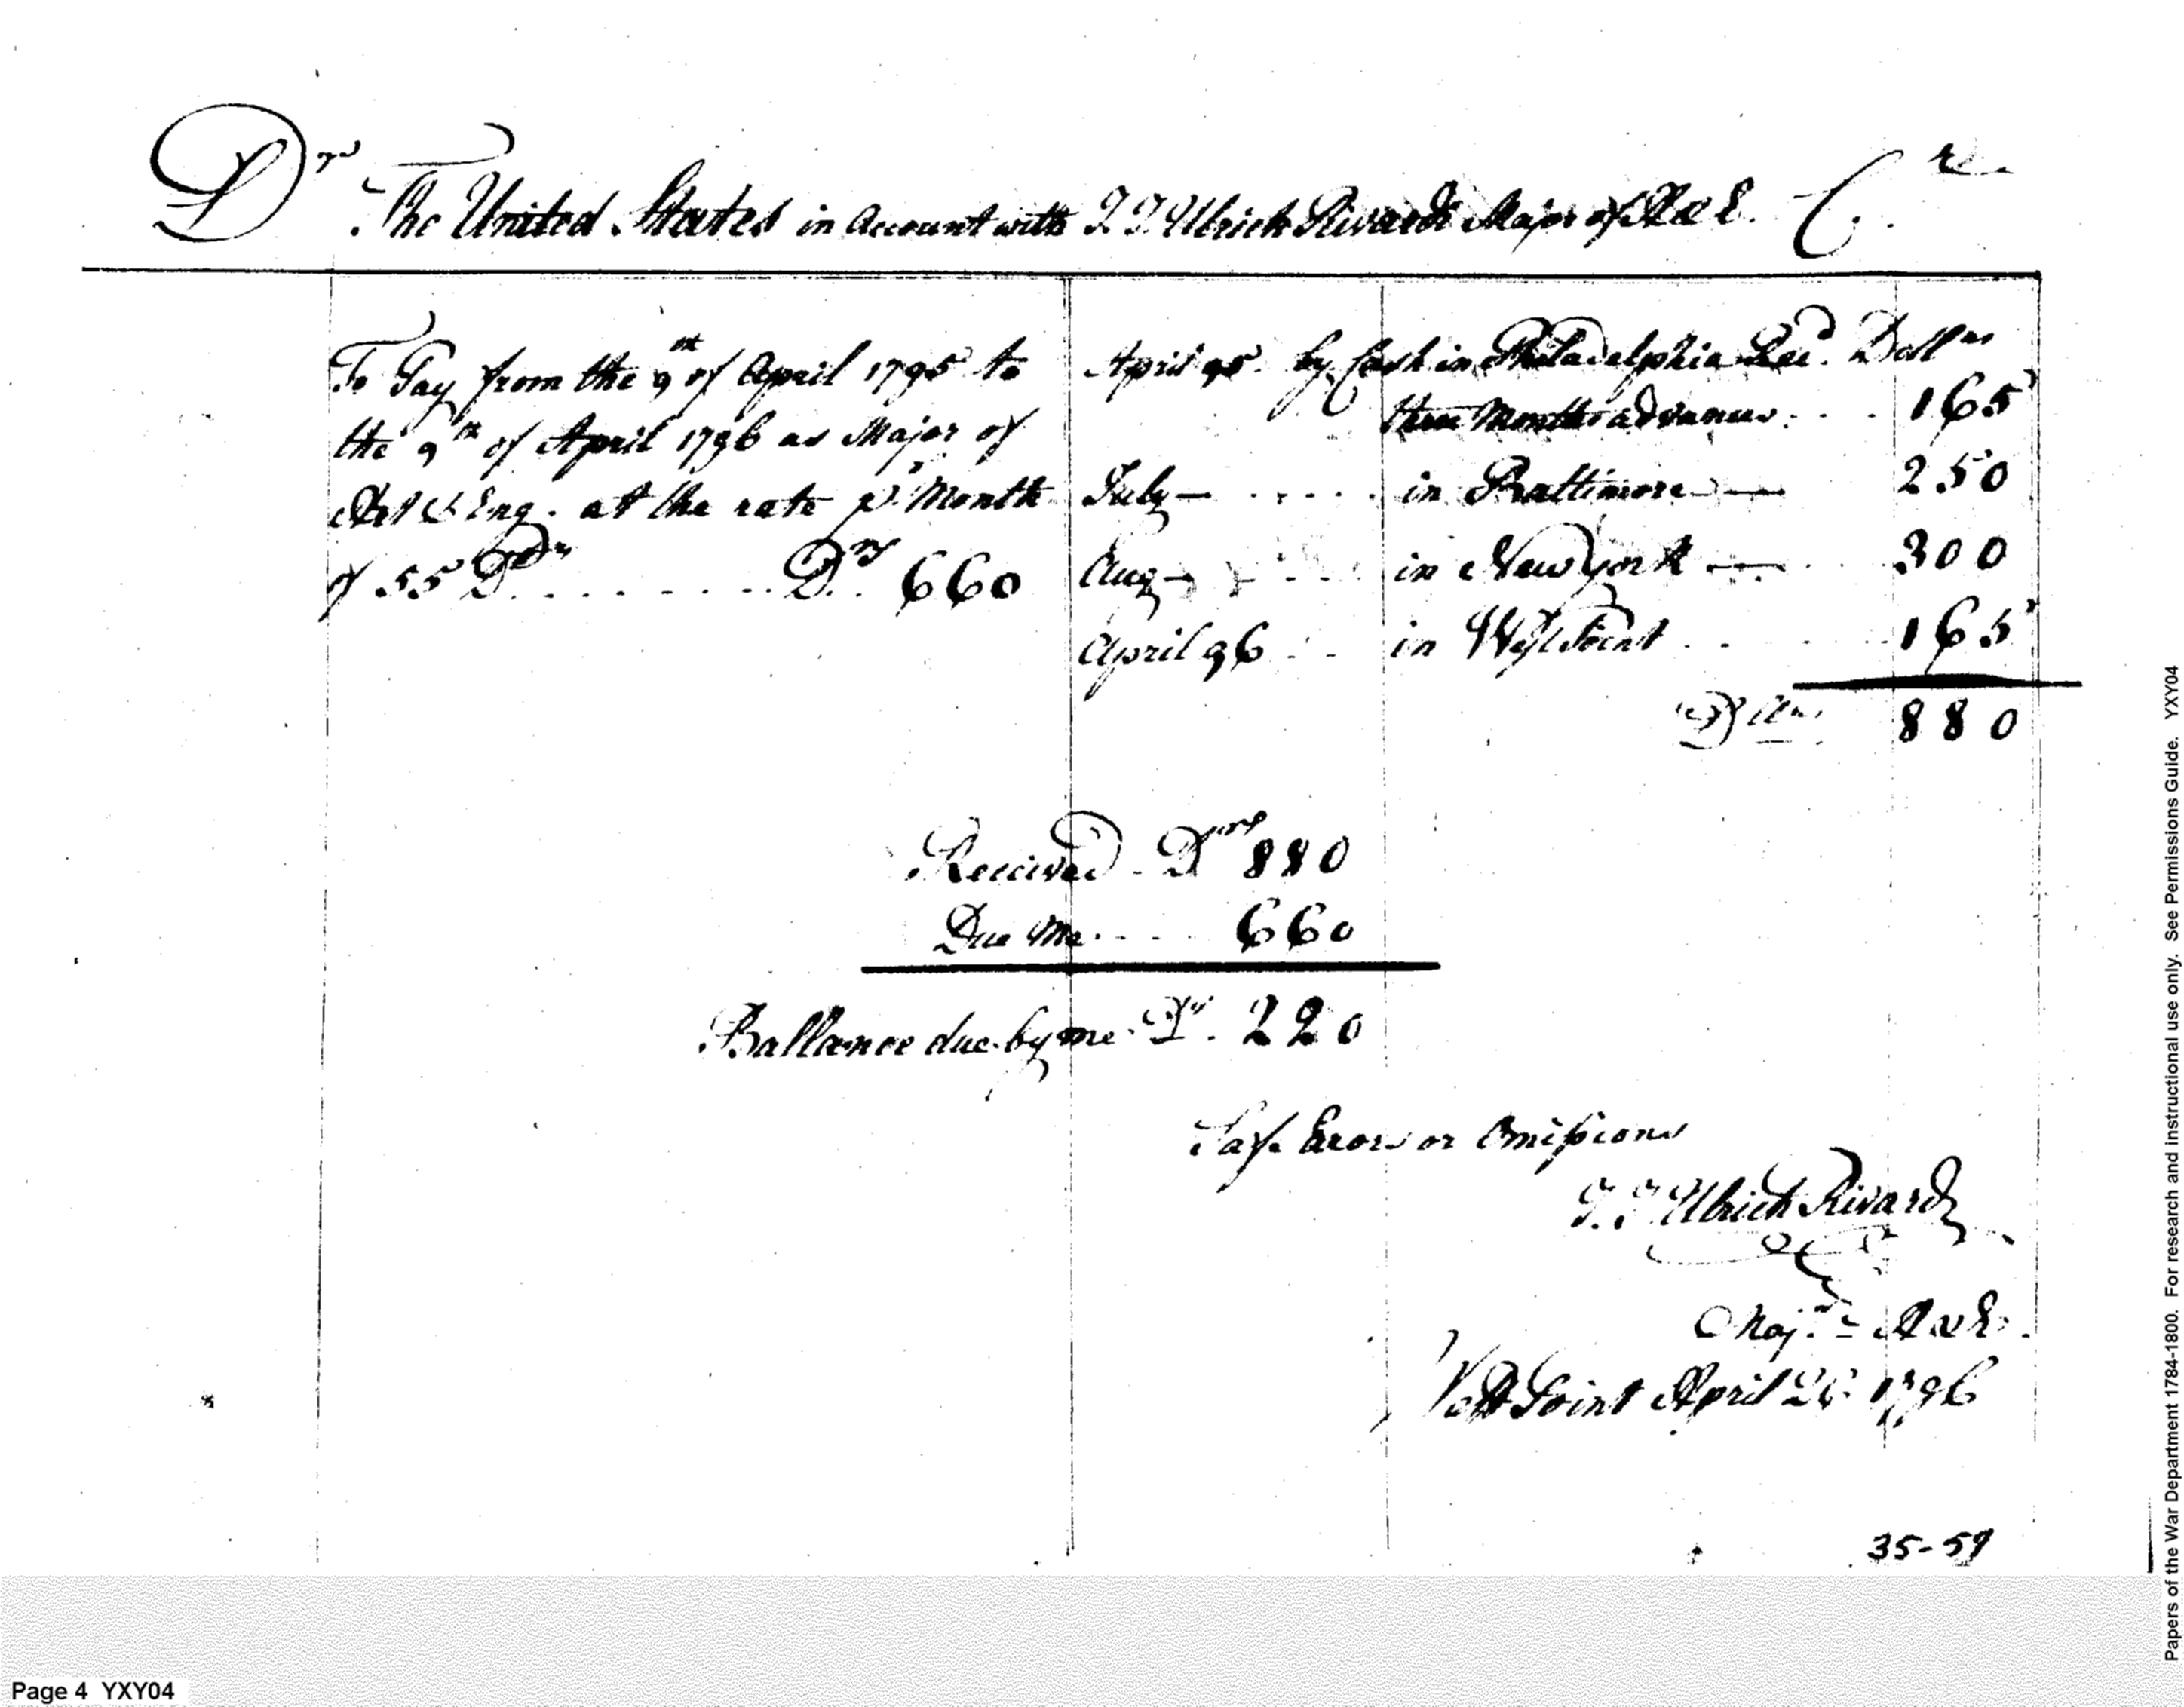 Dr The United States in Account with J. J. Ulrich Rivardi Major of A & E. Cr
To Pay from the 9th of April 1795 to
the 9th of April 1796 as Major of
Art & Eng. at the rate pr Month
of 55 Drs . . . . . . . . Drs 660
April 95. by Cash in Philadelphia Recd. Dollrs
three Months advance . . . 165
July — . . . . . in Baltimore — 250
Aug — . . . . in New York — 300
April 96 . . . in West Point . . . . . 165
880
Received - Drs 880
Due Me . . . . 660
Ballance due by me Drs. 220
Safe Errors or Omissions
J. J. Ulrich Rivardi
Majr - A & E.
West Point April 1796
35-59
Page 4 YXY04
Papers of the War Department 1784-1800. For research and instructional use only. See Permissions Guide. YXY04